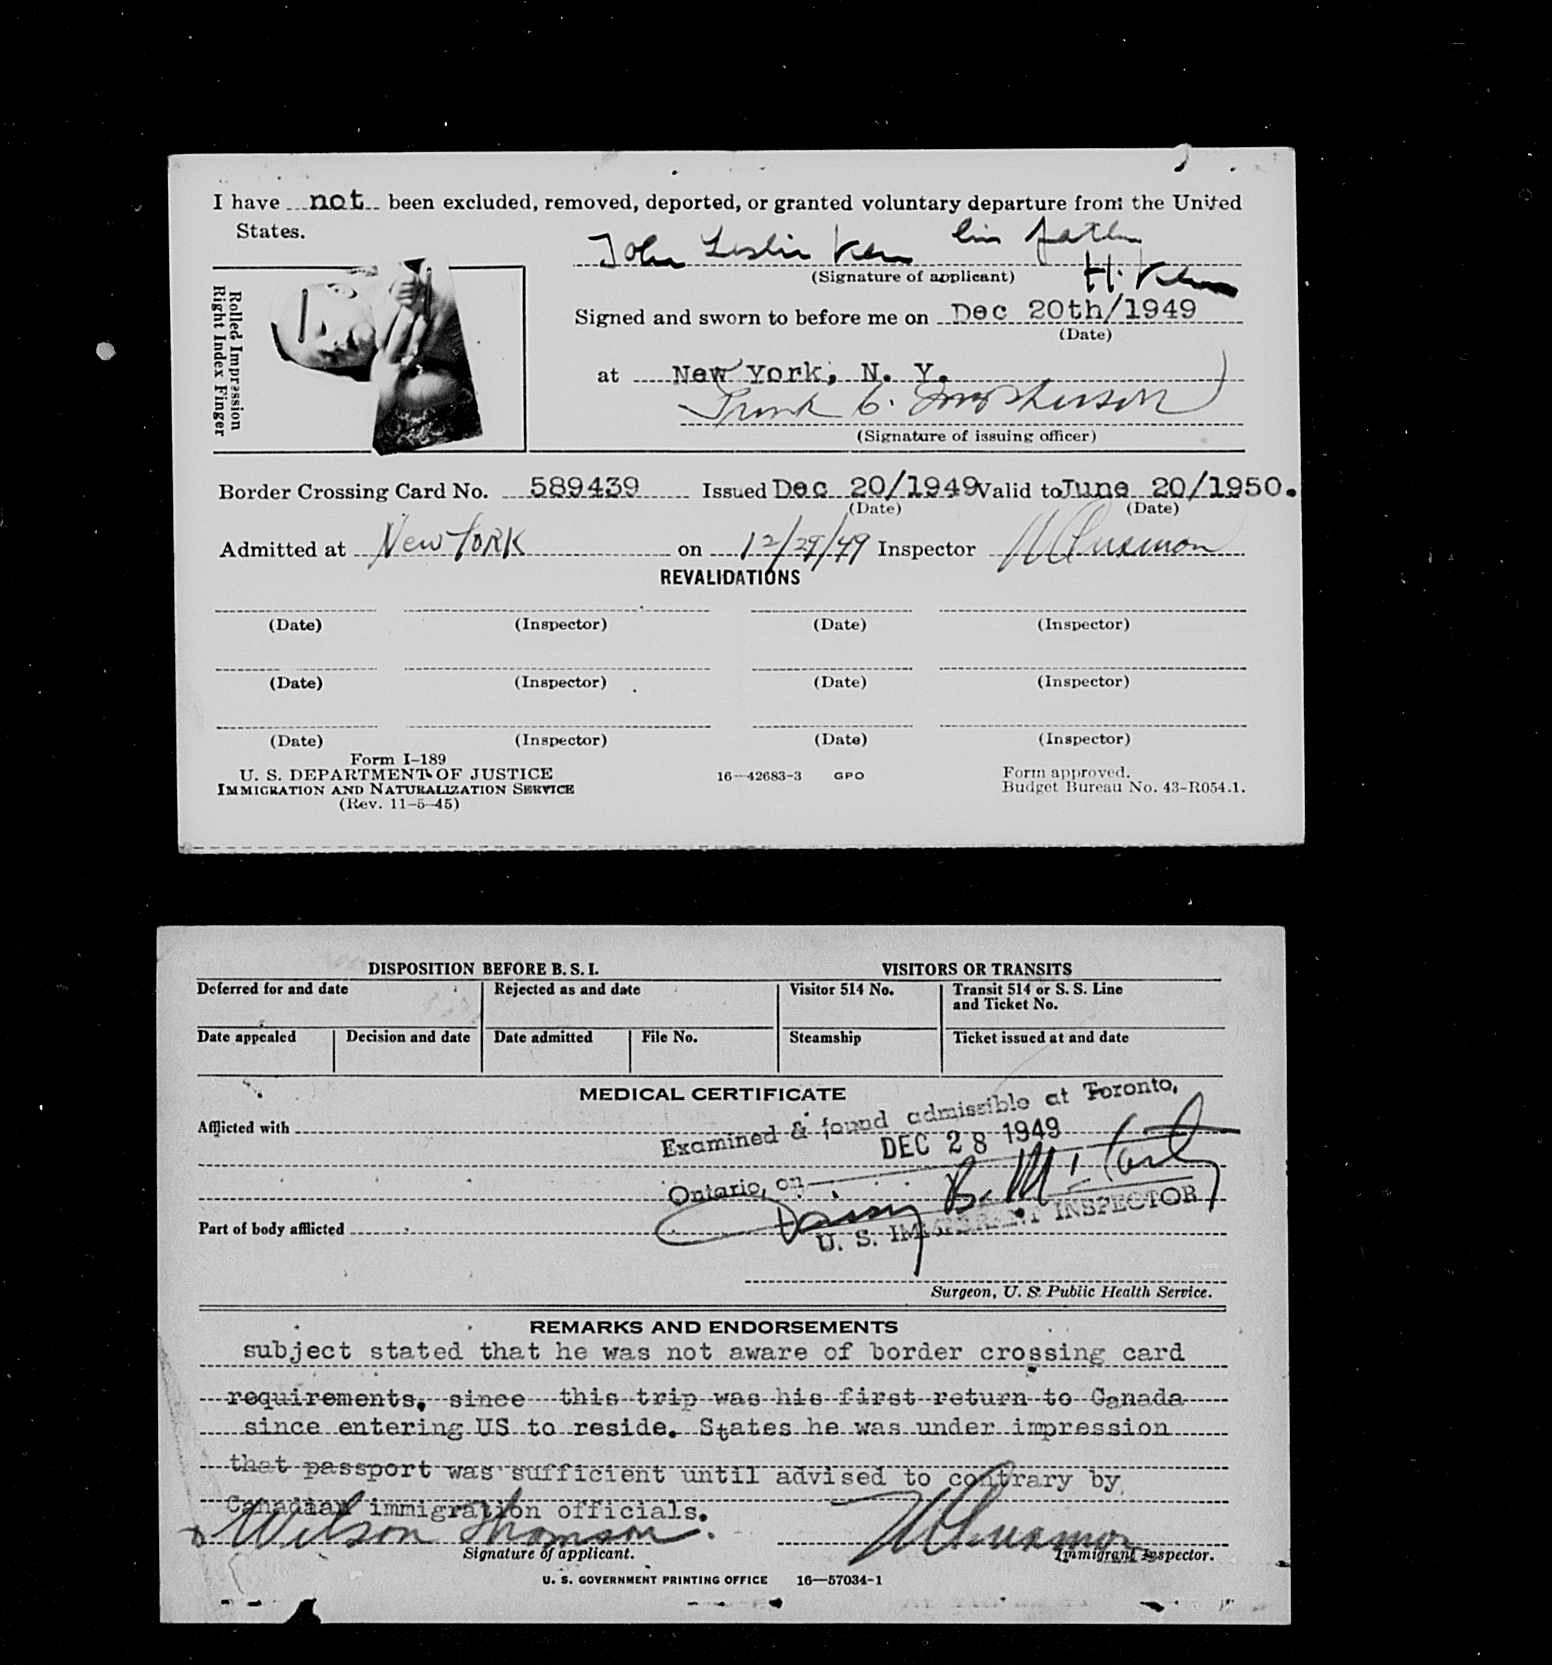 I have not been excluded, removed, deported, or granted voluntary departure from the United
States.
John Leslie his father
(Signature of applicant) H.
Rolled Impression
Right Index Finger
Signed and sworn to before me on Dec 20th/1949
(Date)
at New York, N. Y.
(Signature of issuing officer)
Border Crossing Card No. 589439 Issued Dec 20/1949 Valid to June 20/1950.
(Date) (Date)
Admitted at New York on 12/29/49 Inspector
REVALIDATIONS
(Date) (Inspector) (Date) (Inspector)
(Date) (Inspector) (Date) (Inspector)
(Date) (Inspector) (Date) (Inspector)
Form I-189
U. S. DEPARTMENT OF JUSTICE 16—42683-3 GPO Form approved.
IMMIGRATION AND NATURALIZATION SERVICE Budget Bureau No. 43-R054.1.
(Rev. 11-5-45)
DISPOSITION BEFORE B. S. I. VISITORS OR TRANSITS
Deferred for and date Rejected as and date Visitor 514 No. Transit 514 or S. S. Line
and Ticket No.
Date appealed Decision and date Date admitted File No. Steamship Ticket issued at and date
MEDICAL CERTIFICATE
Afflicted with
Examined & found admissible at Toronto,
DEC 28 1949
Ontario, on
B. McCarthy
Part of body afflicted
U. S. IMMIGRANT INSPECTOR
Surgeon, U. S. Public Health Service.
REMARKS AND ENDORSEMENTS
subject stated that he was not aware of border crossing card
requirements, since this trip was his first return to Canada
since entering US to reside. States he was under impression
that passport was sufficient until advised to contrary by
Canadian immigration officials.
x Wilson Thomson.
Signature of applicant. Immigrant Inspector.
U. S. GOVERNMENT PRINTING OFFICE 16—57034-1